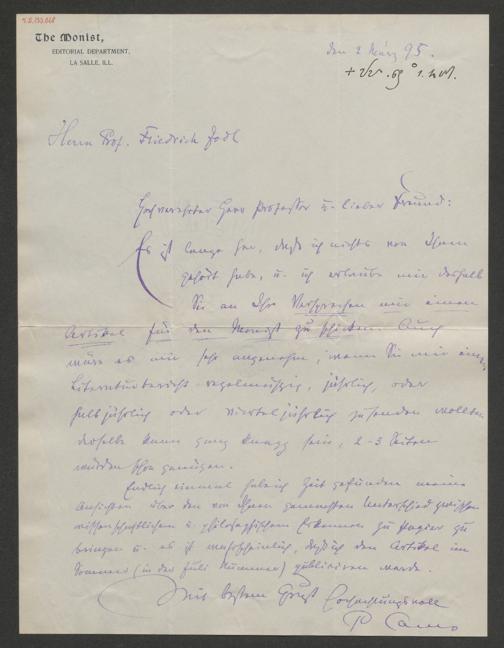 The Monist,
EDITORIAL DEPARTMENT,
LA SALLE, ILL.
den 2 März 95.
Herrn Prof. Friedrich Jodl
Hochverehrter Herr Professor u. lieber Freund:
Es ist lange her, daß ich nichts von Ihnen
gehört habe, u. ich erlaube mir deshalb
Sie an Ihr Versprechen mir einen
Artikel für den Monist zu schicken. Auch
wäre es mir sehr angenehm, wenn Sie mir einen
Literaturbericht regelmässig, jährlich, oder
halbjährlich oder vierteljährlich zusenden wollten
derselbe kann ganz knapp sein, 2-3 Seiten
würden schon genügen.
Endlich einmal habe ich Zeit gefunden meine
Ansichten über den von Ihnen Unterschied zwischen
wissenschaftlichem u. philosophischem Erkennen zu Papier zu
bringen u. es ist wahrscheinlich, daß ich den Artikel im
Sommer (in der Juli Nummer) publiciren werde.
Mit bestem Gruß Hochachtungsvoll
P. Carus